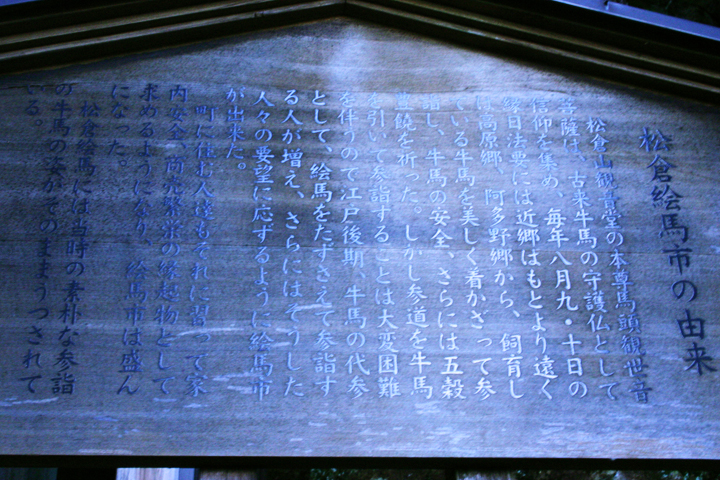 松倉絵馬市の由来
松倉山観音堂の本尊馬頭観世音
菩薩は、古来牛馬の守護仏として
信仰を集め、毎年八月九・十日の
縁日法要には近郷はもとより遠く
は高原郷、阿多野郷から、飼育し
ている牛馬を美しく着かざって参
詣し、牛馬の安全、さらには五穀
豊饒を祈った。しかし参道を牛馬
を引いて参詣することは大変困難
を伴うので江戸後期、牛馬の代参
として、絵馬をたずさえて参詣す
る人が増え、さらにはそうした
人々の要望に応ずるように絵馬市
が出来た。
町に住む人達もそれに習って家
内安全、商売繁盛の縁起物として
求めるようになり、絵馬市は盛ん
になった。
松倉絵馬には当時の素朴な参詣
の牛馬の姿がそのままうつされて
いる。